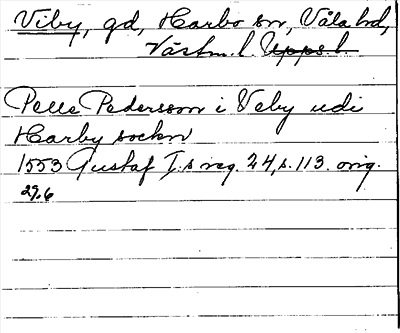 Viby, gd, Harbo sn, Våla hd,
Västm. l. Upps. l.
Pelle Pedersson i Veby udi
Harby sockn
1553 Gustaf I.s reg. 24, s. 113. orig.
29/6